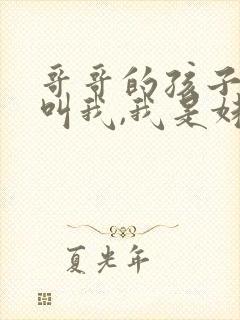 哥哥的孩子
叫我,我是妹
夏光年